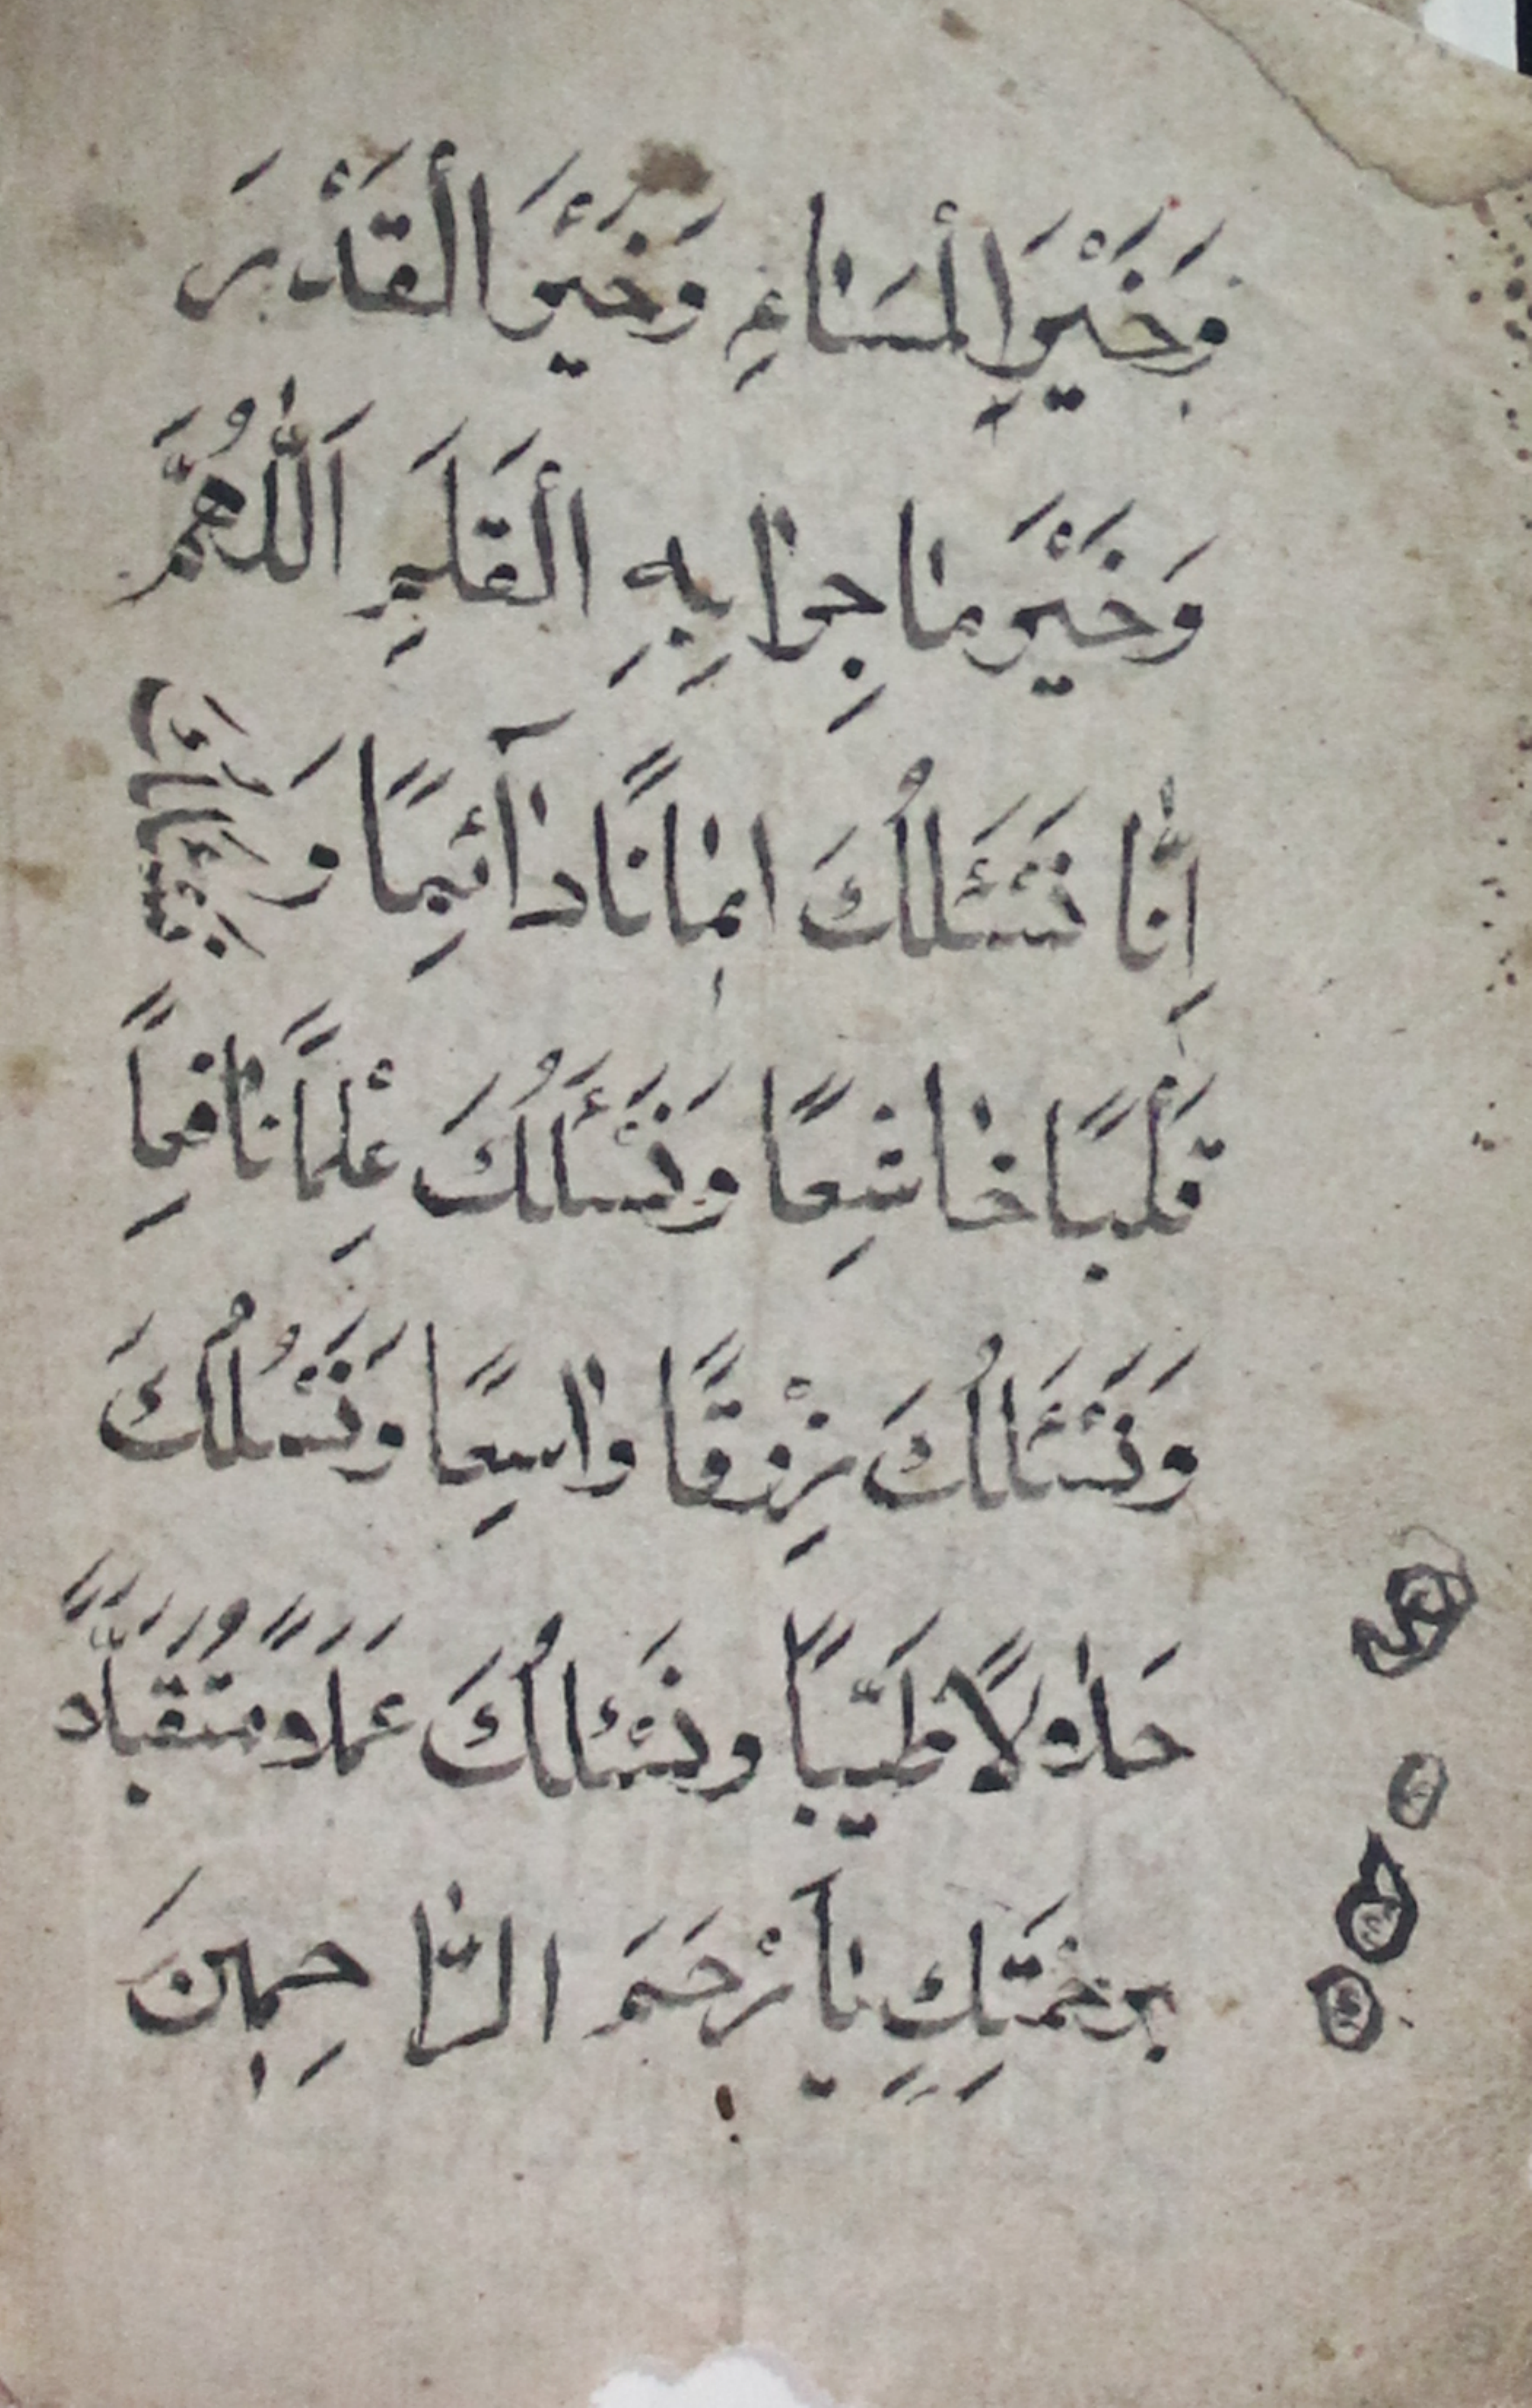 وَخَيْرَ الْمَسَاءِ وَخَيْرَ الْقَدْرَ
وَخَيْرَ مَا جِرٰا بِهِ الْقَلَمِ اَللّٰهُمَّ
اِنّٰا نَسْئَلُكَ اِمٰانًا دٰآئِمًا وَ نَسْئَلُكَ
قَلْبًا خٰاشِعًا وَنَسْئَلُكَ عْلِمًا نٰافِعاً
وَنَسْئَلُكَ رِزْقًا وٰاسِعًا وَنَسْئَلُكَ
حَلٰاولًا طَيِّبًا وَنَسْئَلُكَ عَمَلاً وَمُتَقَبَّلاً
بِرَحْمَتِكِ يٰآ اَرْحَمَ الرّٰاحِمِينَ